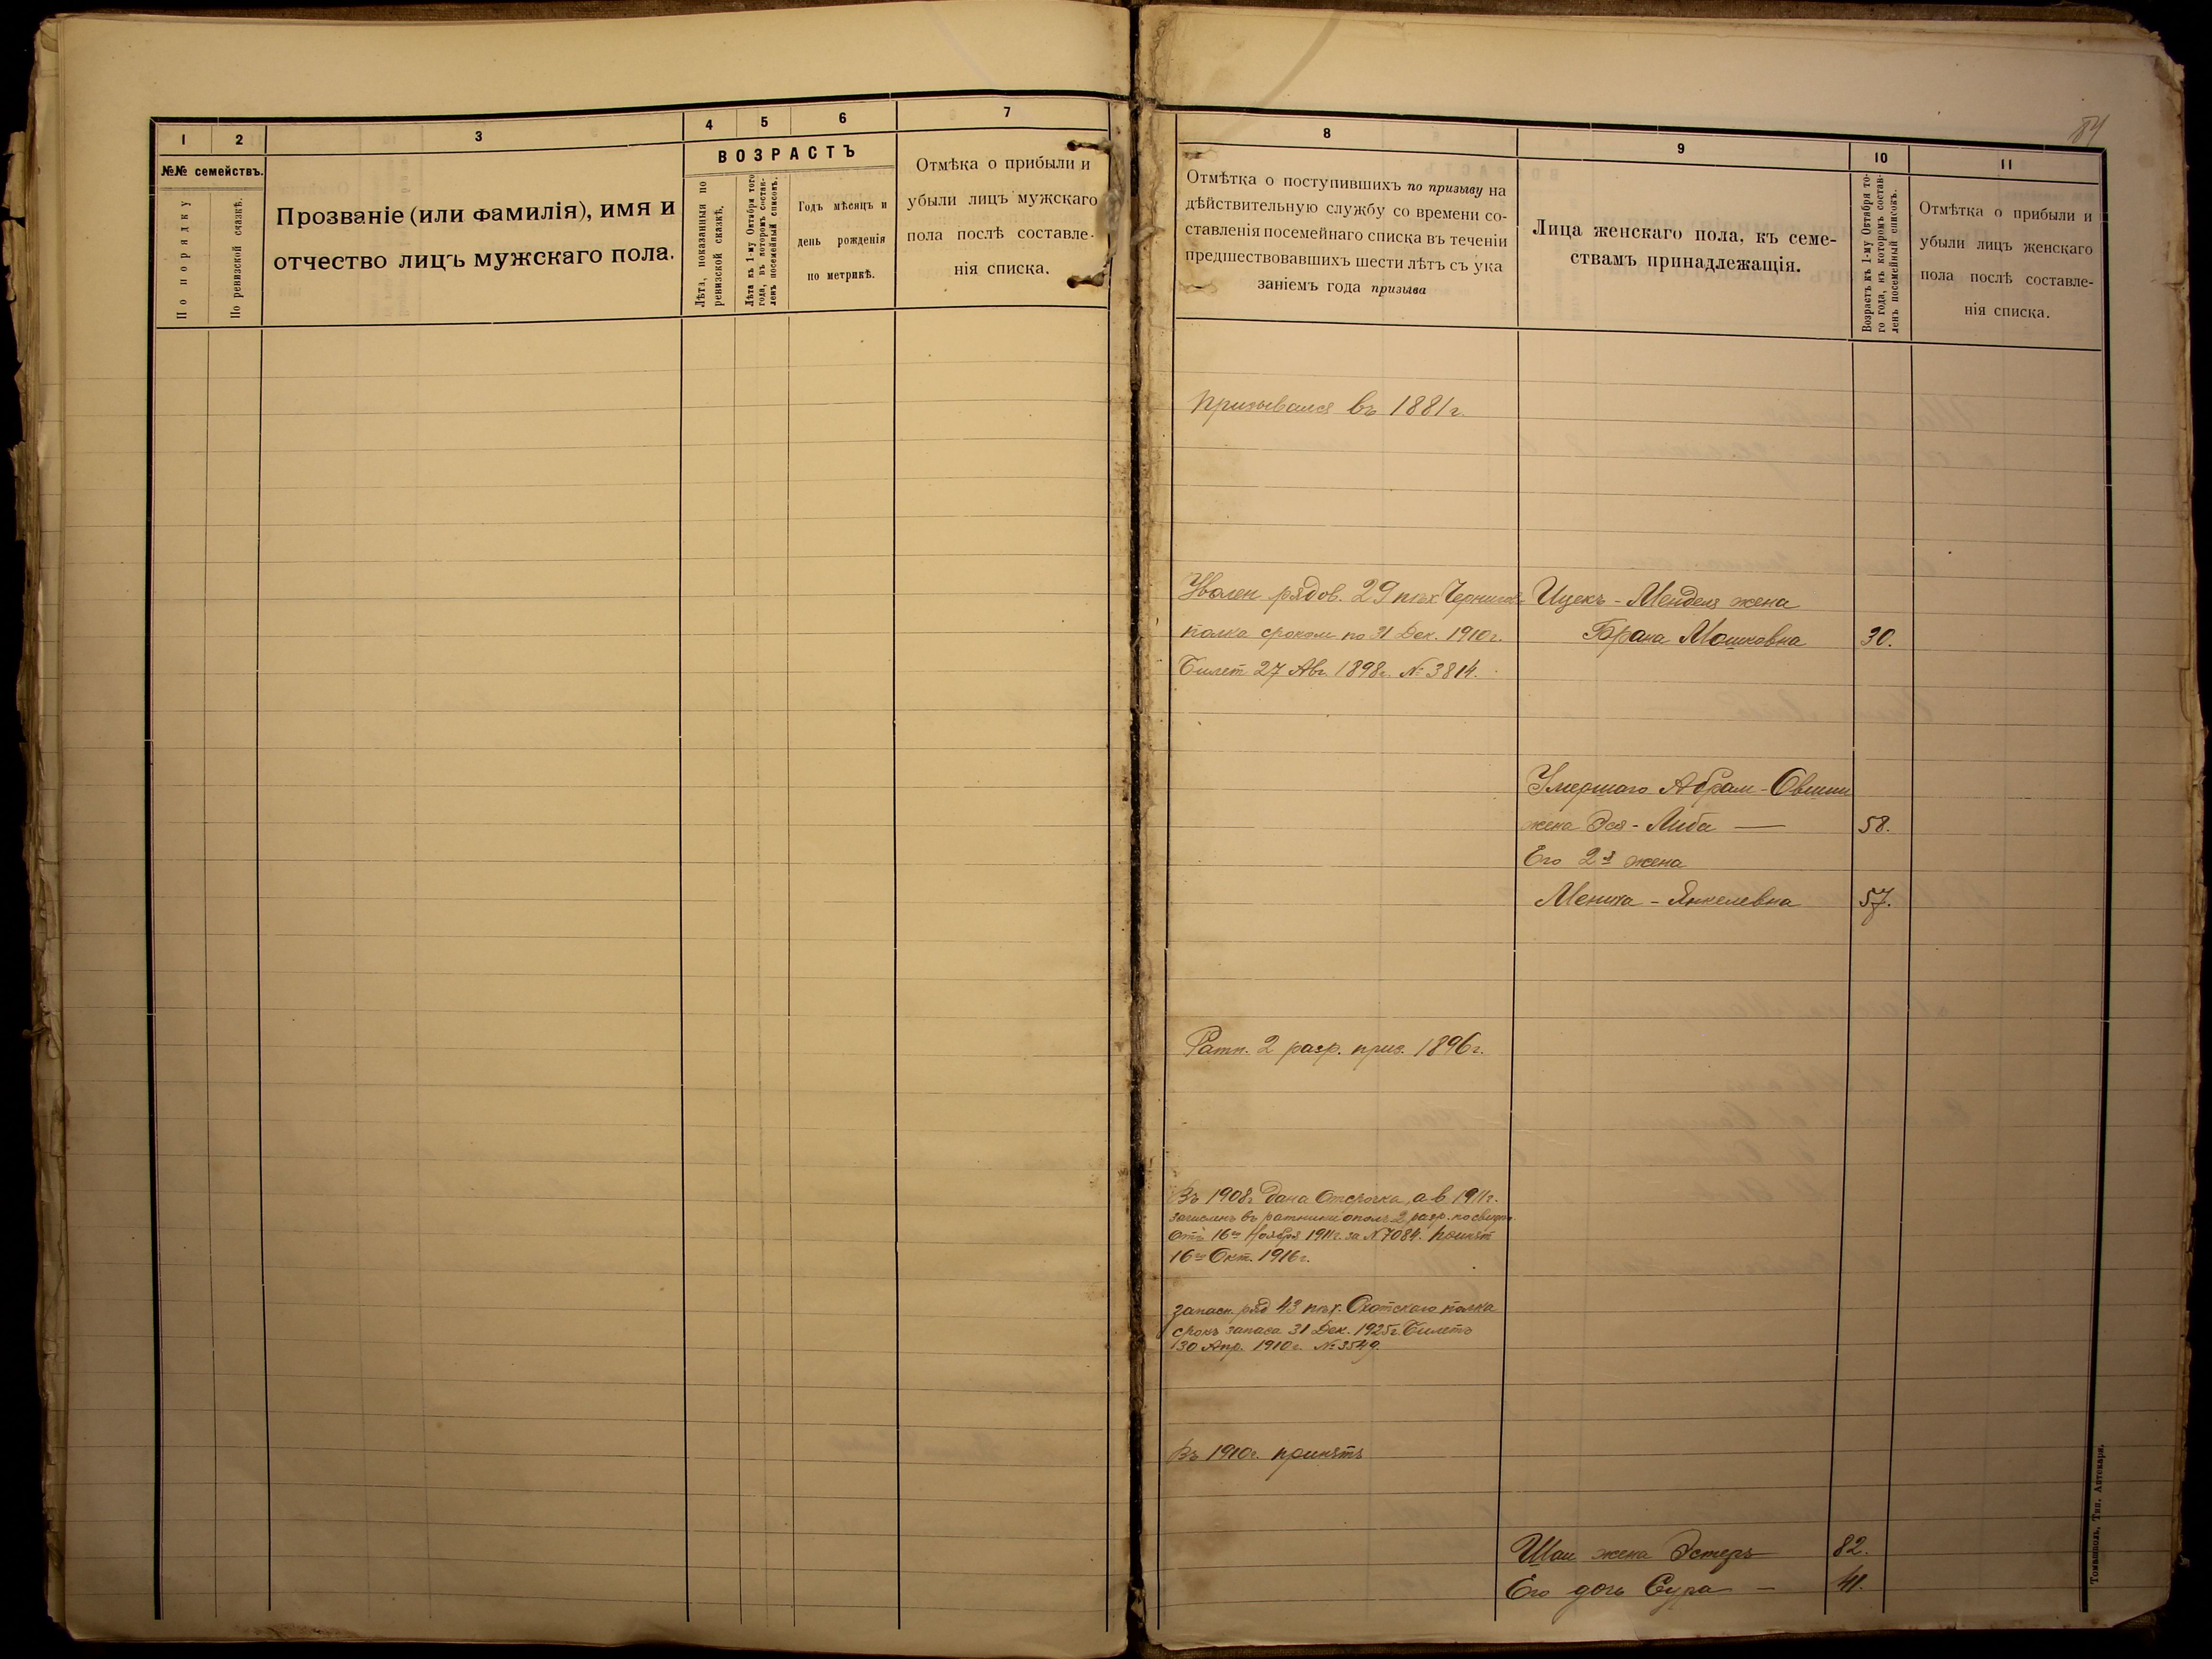 1 2 3 4 5 6 7
№№ семействъ.
По порядку
По ревизской сказкѣ.
Прозваніе (или фамилія), имя и
отчество лицъ мужскаго пола.
ВОЗРАСТЪ
Лѣта, показанныя по
ревизской сказкѣ.
Лѣта къ 1-му Октября того
года, въ которомъ состав-
ленъ посемейный списокъ.
Годъ мѣсяцъ и
день рожденія
по метрикѣ.
Отмѣка о прибыли и
убыли лицъ мужскаго
пола послѣ составле-
нія списка.
84
8 9 10 11
Отмѣтка о поступившихъ по призыву на
дѣйствительную службу со времени со-
ставленія посемейнаго списка въ теченіи
предшествовавшихъ шести лѣтъ съ ука
заніемъ года призыва
Лица женскаго пола, къ семе-
ствамъ принадлежащія.
Возрастъ къ 1-му Октября то-
го года, въ которомъ состав-
ленъ посемейный списокъ.
Отмѣтка о прибыли и
убыли лицъ женскаго
пола послѣ составле-
нія списка.
Призывался въ 1881 г.
Уволен рядов. 29 пѣх. Чернигов.
полка сроком по 31 Дек. 1910 г.
Билет 27 Авг. 1898 г. № 3814.
Ицекъ - Менделя жена
Брана Мошковна 30.
Умершаго Абрам - Овшии
жена Эся - Либа — 58.
Его 2я жена
Мениха - Янкелевна 57.
Ратн. 2 разр. приз. 1896 г.
Въ 1908 г дана Отсрочка, а в 1911 г.
зачисленъ въ ратники ополч. 2 разр. по свидѣт.
отъ 16го Ноября 1911 г. за № 7084. Принят
16го Окт. 1916 г.
Запасн. ряд 43 пѣх. Охотскаго полка
срокъ запаса 31 Дек. 1925 г. Билетъ
30 Апр. 1910 г. № 3549.
Въ 1910 г. принятъ
Шаи жена Эстеръ 82.
Его дочь Сура — 41.
Томашполь, Тип. Аптекаря.